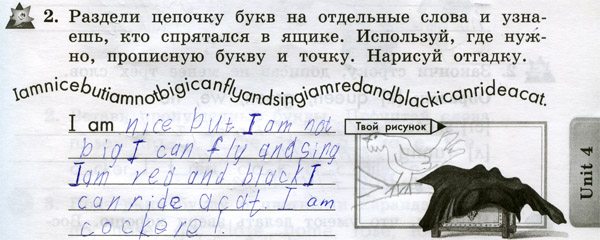 2. Раздели цепочку букв на отдельные слова и узна-
ешь, кто спрятался в ящике. Используй, где нуж-
но, прописную букву и точку. Нарисуй отгадку.
Iamnicebutiamnotbigicanflyandsingiamredandblackicanrideacat.
I am nice but I am not
big I can fly and sing
I am red and black I
can ride a cat. I am
cockerel.
Твой рисунок
Unit 4